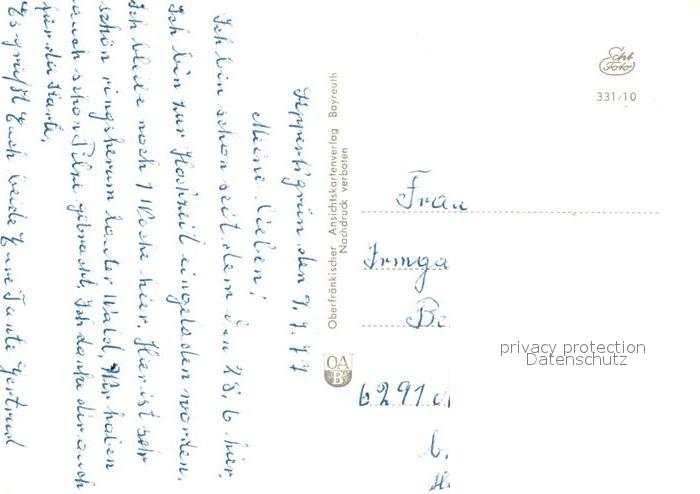 Lippertsgrün, den 9.7.77
Meine Lieben!
Ich bin schon seit dem den 28.6. hier.
Ich bin zur Hochzeit eingeladen worden.
Ich bleibe noch 1 Woche hier. Hier ist sehr
schön ringsherum lauter Wald, Wir haben
auch schon Pilze gebracht. Ich danke dir auch
für die Karte.
Es grüßt Euch beide Eure Tante Gertrud
Oberfränkischer Ansichtskartenverlag Bayreuth
Nachdruck verboten
OA
B
Echt
Foto
331/10
Frau
Irmga
Be
6291
privacy protection
Datenschutz